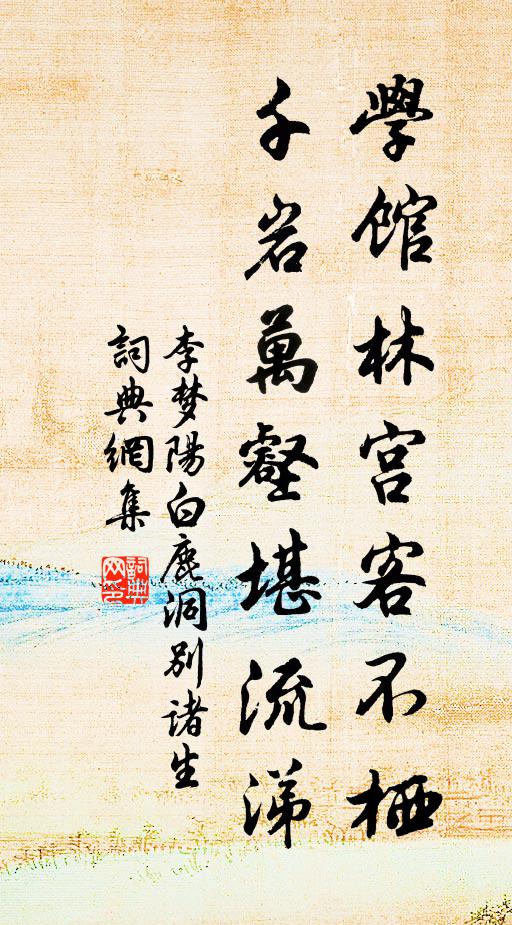 學館林宮客不栖
千岩萬壑堪流涕
李梦陽白鹿洞别诸生
詞典網集
詞典網印